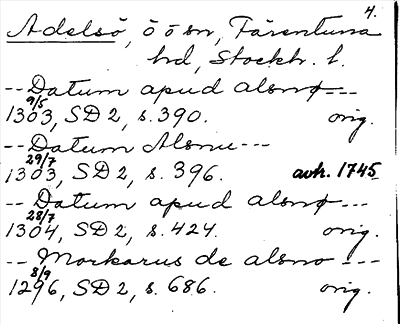 4.
Adelsö, öösn, Färentuna
hd, Stockh. l.
-- Datum apud alsnø ---
1303 9/5, SD 2, s. 390. orig.
-- Datum Alsnu ---
1303 29/7, SD 2, s. 396. avh. 1745
-- Datum apud alsnø ---
1304 28/7, SD 2, s. 424. orig.
-- Markarus de alsno ---
1296 8/9, SD 2, s. 686. orig.